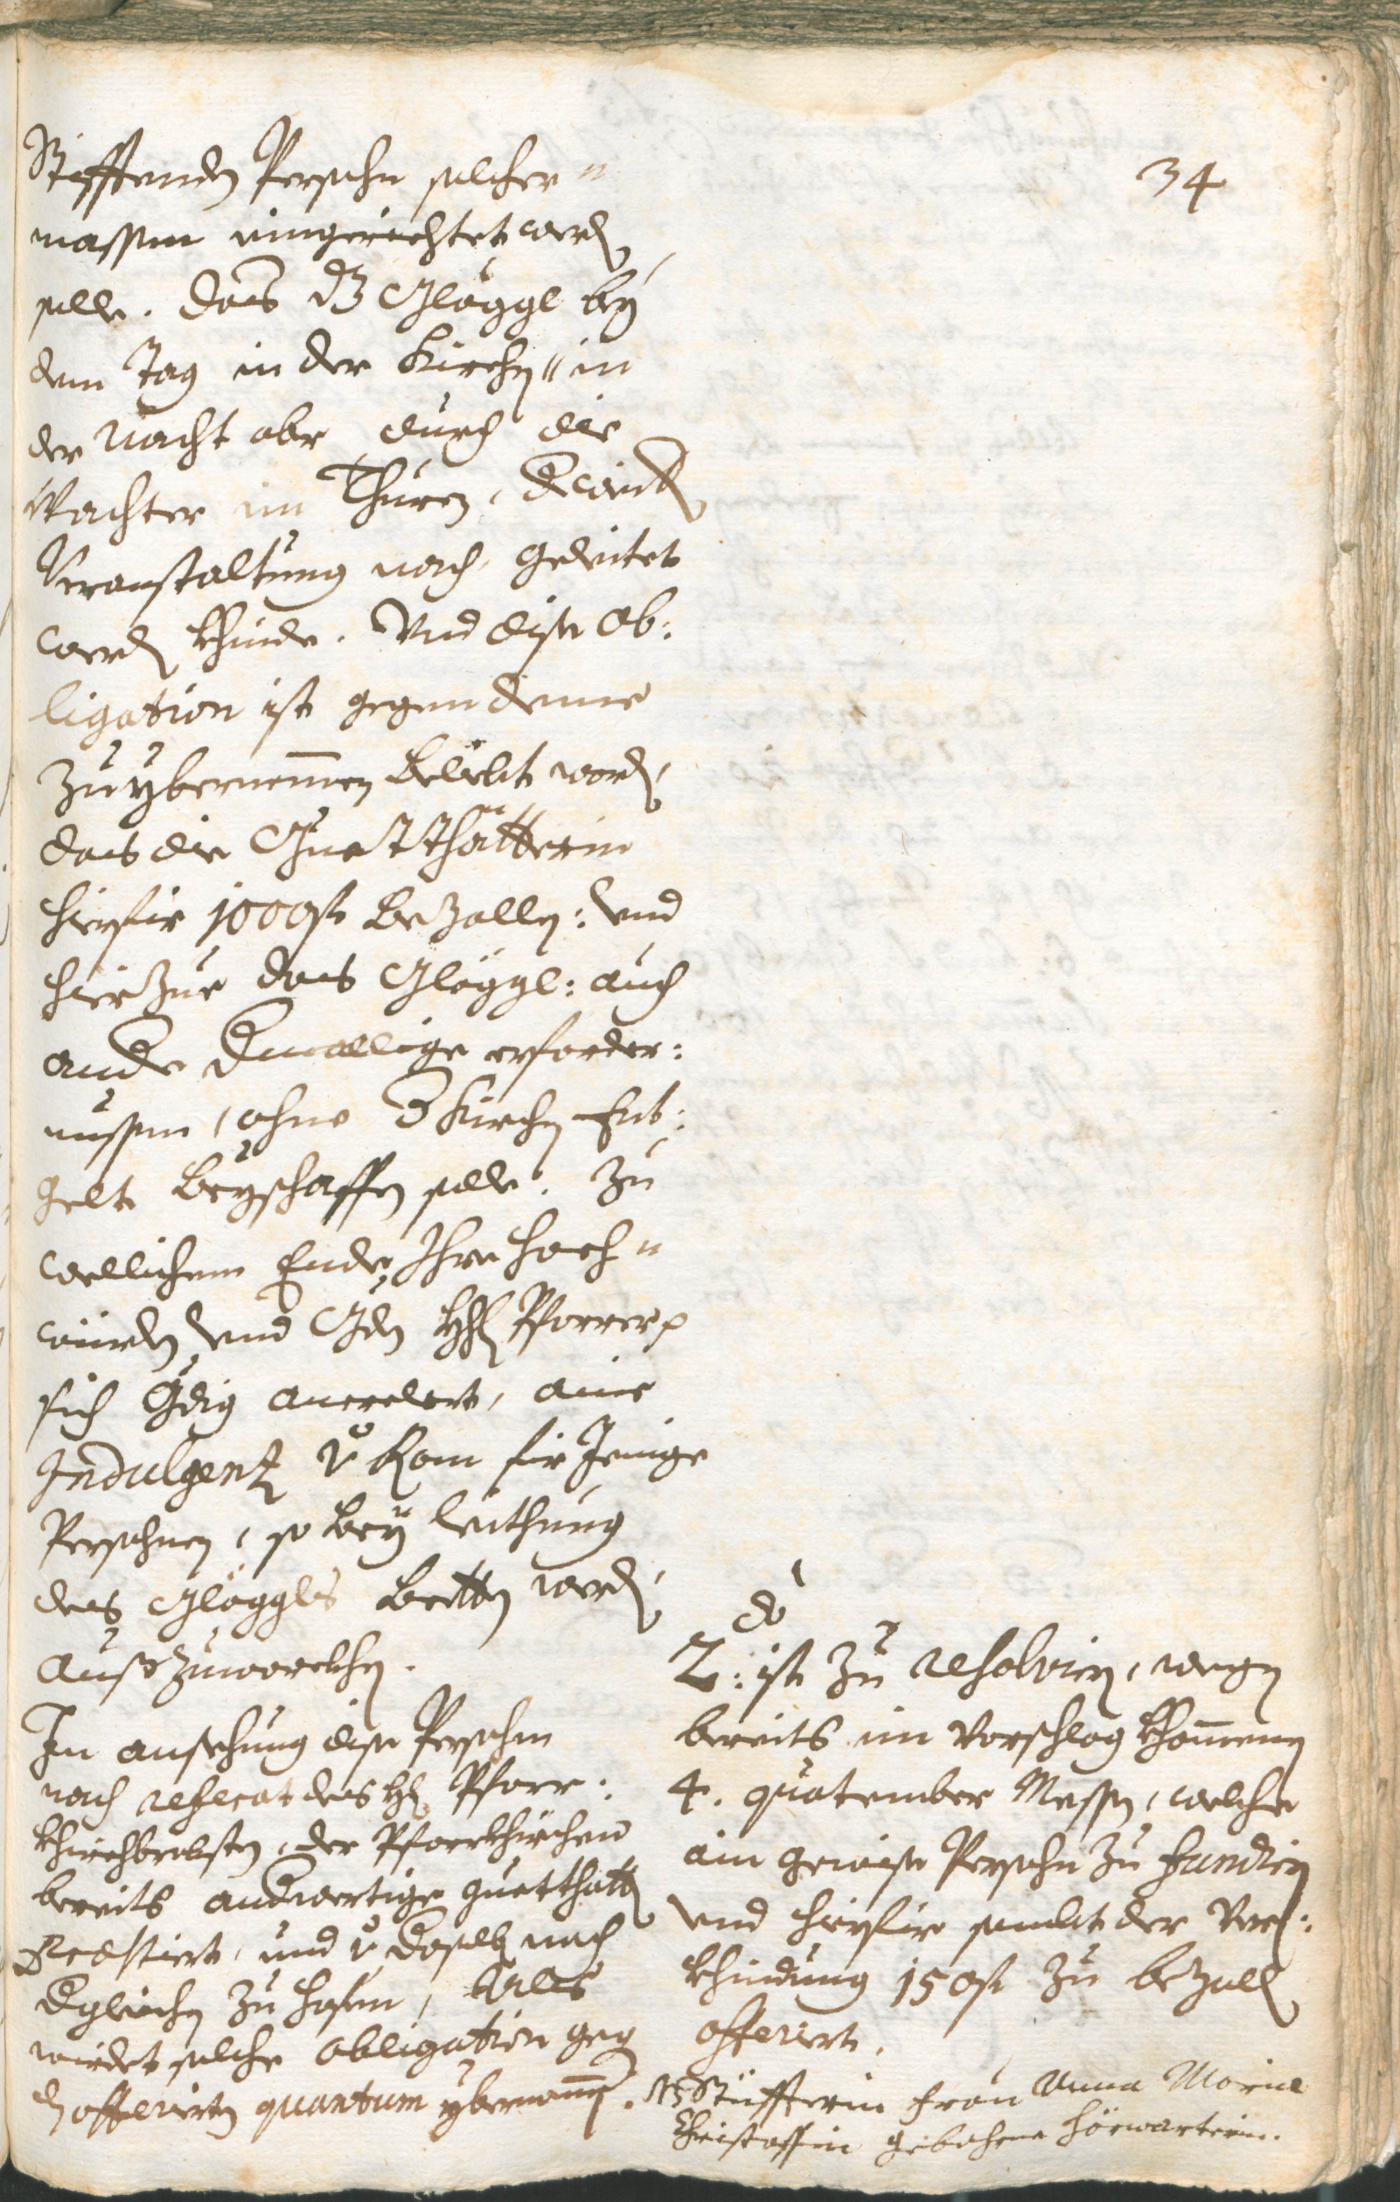 34
Stüfftenden Persohn solcher =
massen eingerichtet werd(en)
solle. das dz Glöggl bey
dem Tag in der Kirchen, in
der Nacht aber durch die
Wachter im Thuren,
Veranstaltung nach, geleitet
werden khinde. Und dise Ob:
ligation ist gegen deme
zu ybernemmen beliebt worden,
das die Guetthätterin
hierfir 1000 fl bezallen: und
hierzue das Glöggl: auch
andere erforder:
nussen, ohne d(er) Kirchen Ent:
gelt beyschaffen solle. Zu
wellichem Ende Ihre Hoch =
würden und Gd(en) H(err) Pfarrer
sich g(nä)dig anerbott, aine
Indulgenz v(on) Rom fir jenige
Persohnen, so bey leithung
des Glöggls betten werden,
auszuwürckhen.
In ansehung dise Persohn
nach referat des H(errn) Pfarr:
khirchbrobsten, der Pfarrkhürchen
bereits guetthatt(en)
Praestiert, und v(on) nach
d(er)gleichen zu hoffen, Als
würdet solche obligation geg(en)
d(en) offerierten quantum ybernommen.
do
2: ist zu resolviren, wegen
bereits im Vorschlag khommenen
4. quatember Messen, welche
ain gewise Persohn zu fundiren
und hierfir sambt der Ver:
khindung 150 fl zu bezallen
offeriert.
NB Stüffterin Frau Anna Maria
Christoffin gebohrne Hörwarterin.